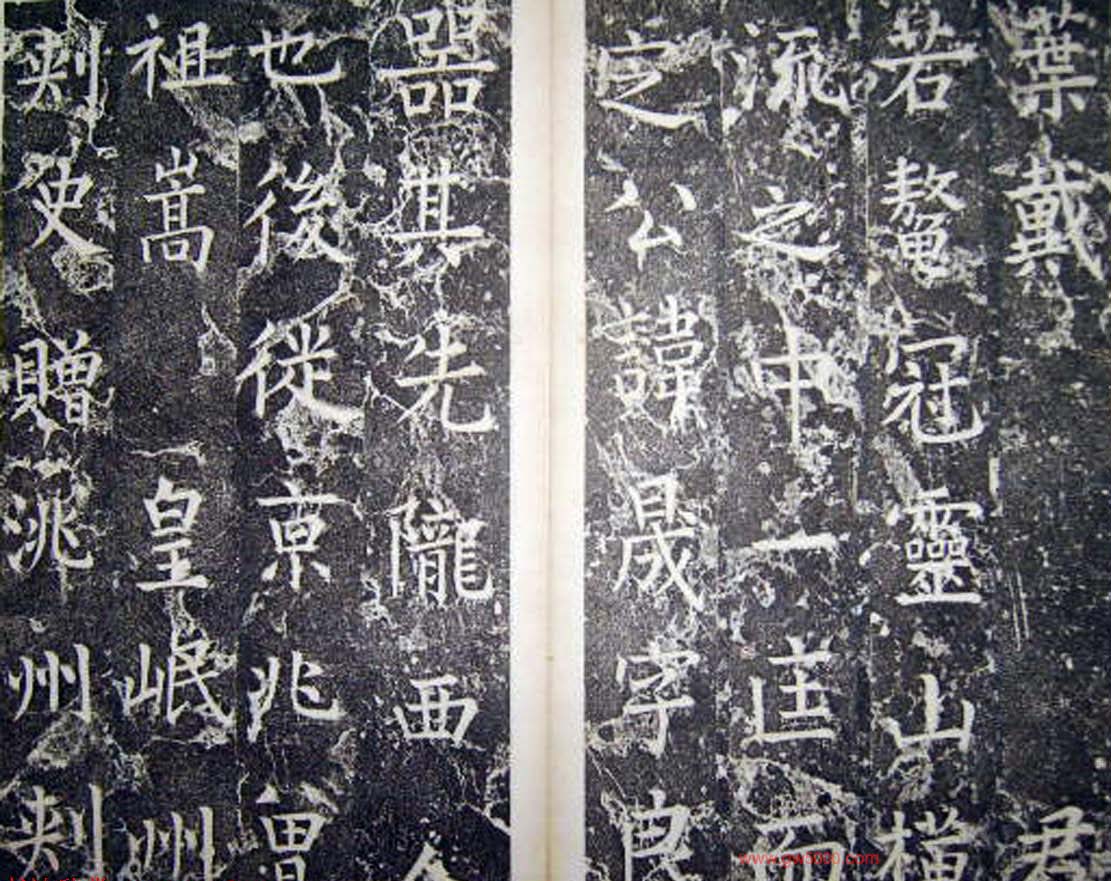 葉戴君
若鼇冠靈山橫
流之中一匡而
㝎公諱晟字良
器其先隴西人
也後徙京兆曾
祖嵩皇岷州
刺史贈洮州刺